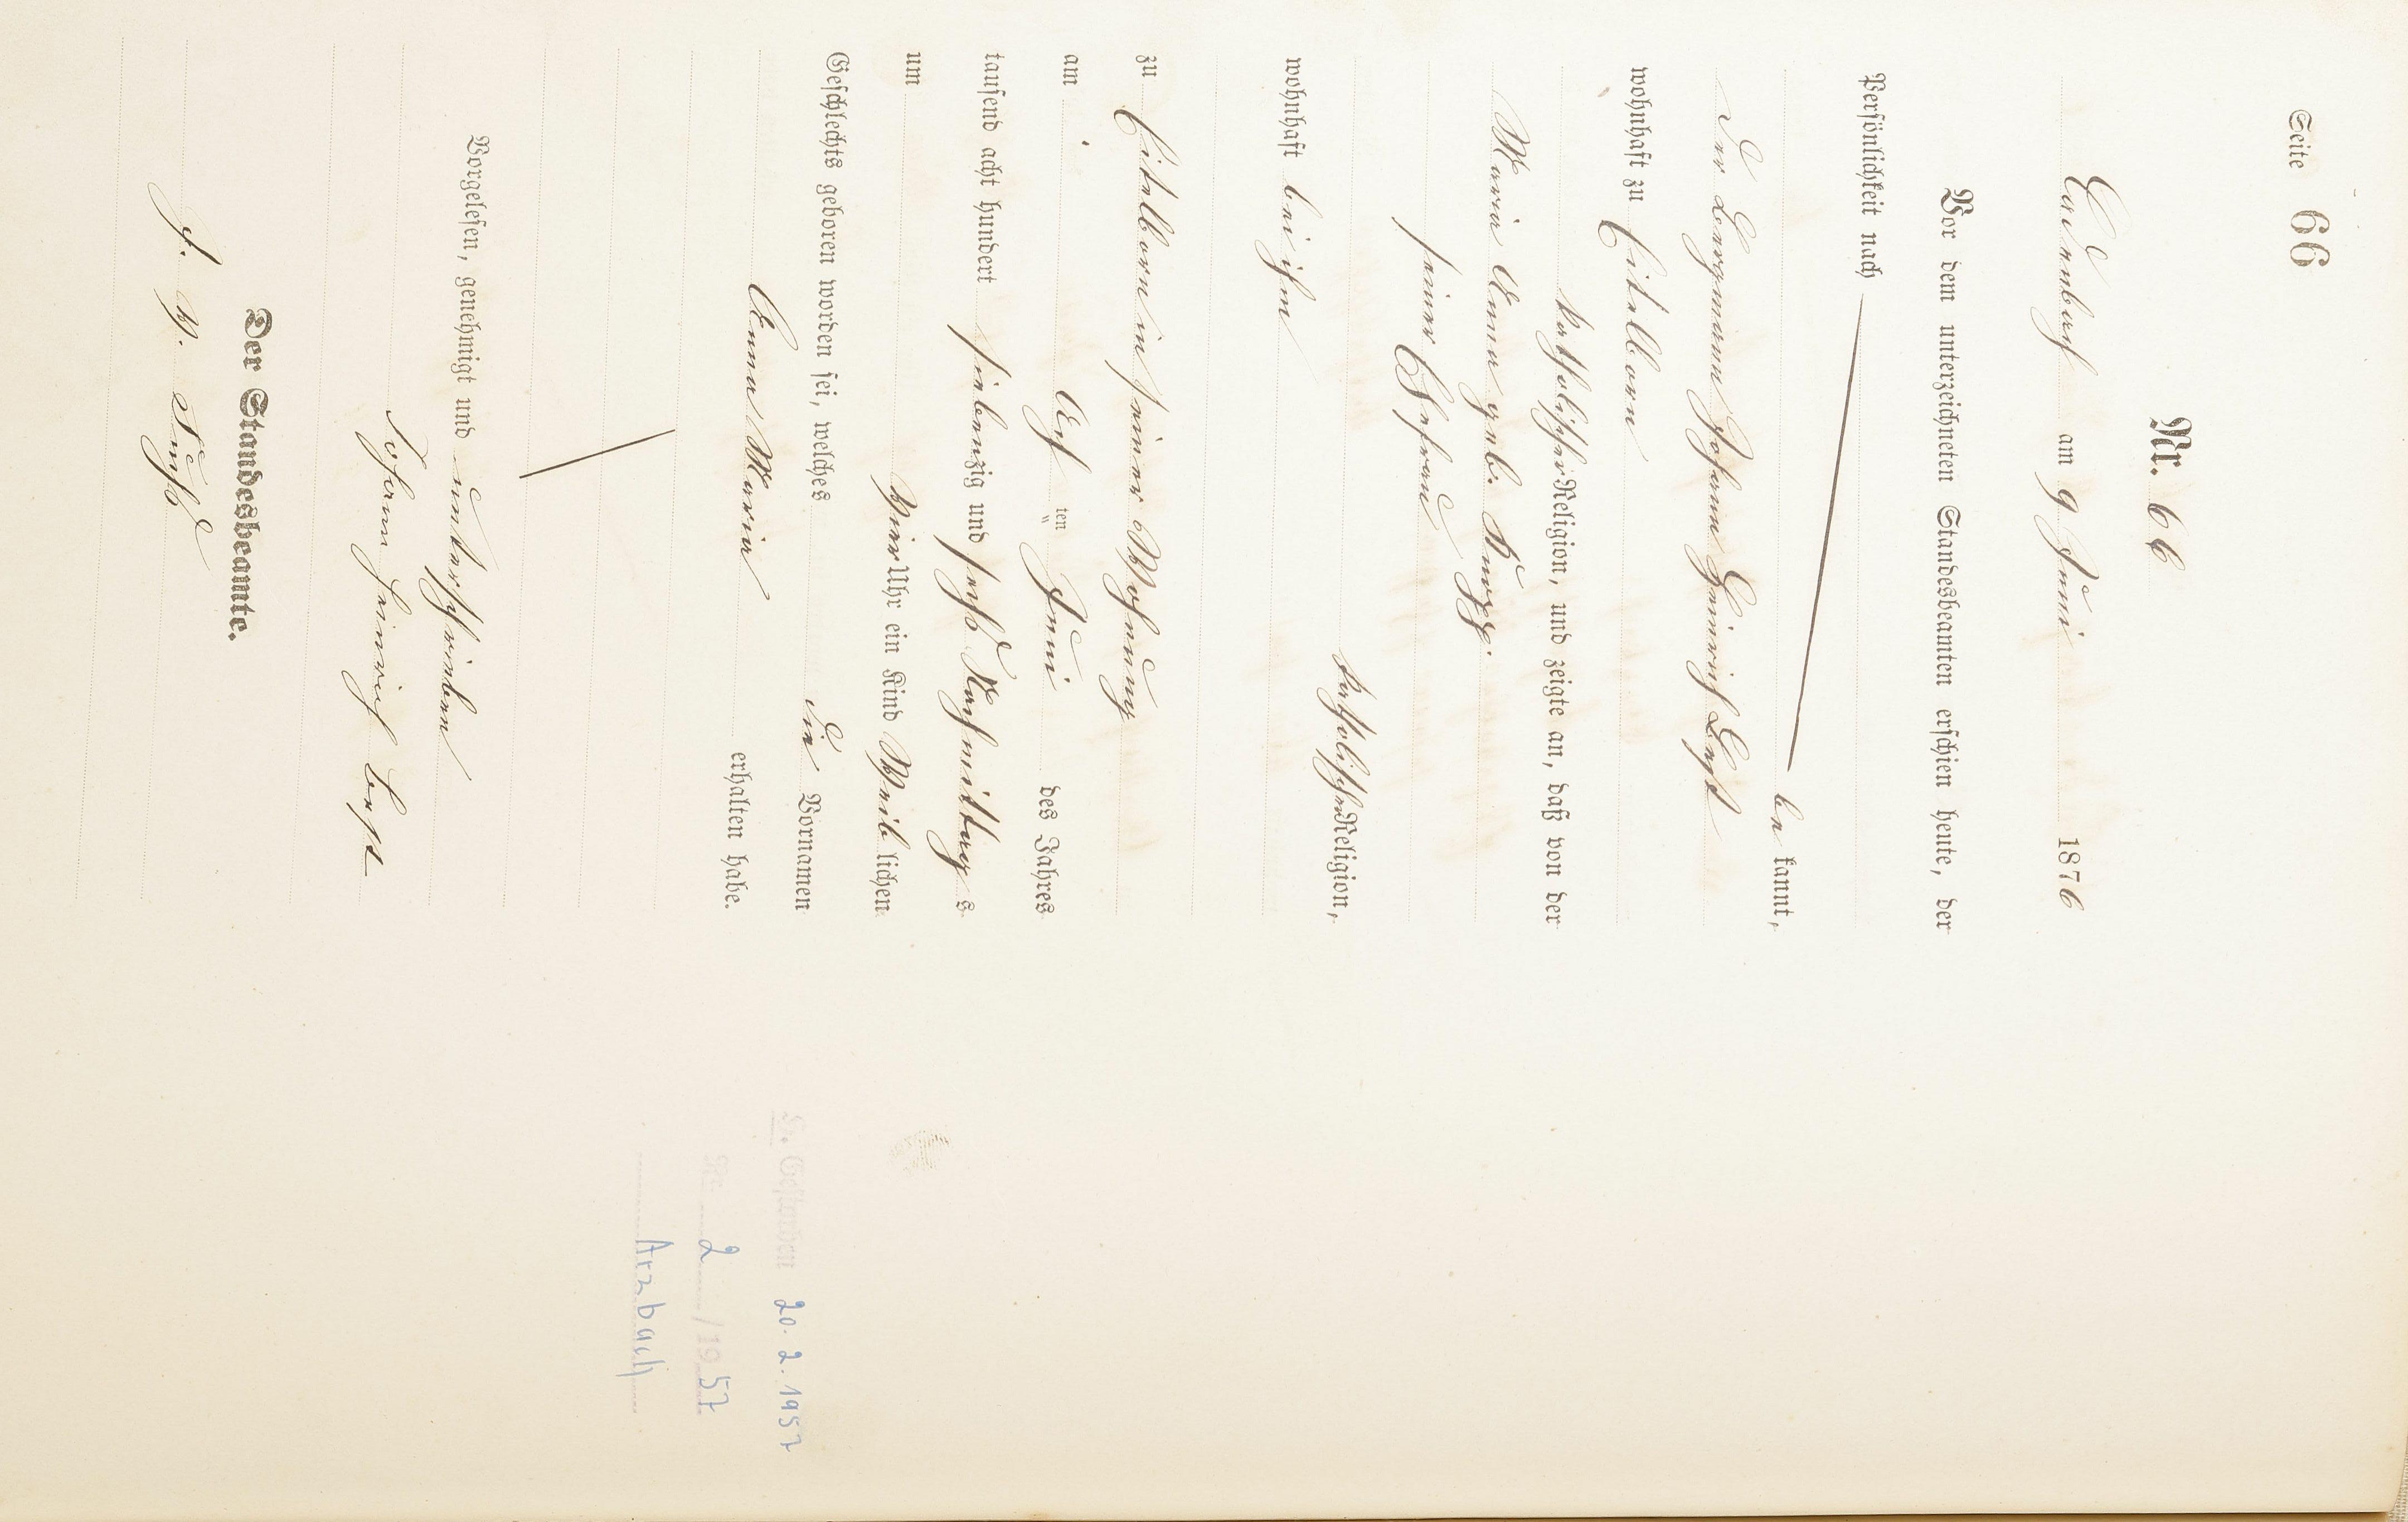 Seite 66
Nr. 66
am 9 Juni 1876
Vor dem unterzeichneten Standesbeamten erschien heute, der
Persönlichkeit nach
be kannt,
der Bergmann Johann Heinrich Best
wohnhaft zu Eitelborn
katholischer Religion, und zeigte an, daß von der
Maria Anna geb.
seiner Ehefrau
katholischer Religion,
wohnhaft bei ihm
zu Eitelborn in seiner Wohnung
am Acht ten Juni des Jahres
tausend acht hundert siebenzig und sechs Nachmittag s
um Vier Uhr ein Kind Weib lichen
Geschlechts geboren worden sei, welches die Vornamen
Anna Maria
erhalten habe.
Vorgelesen, genehmigt und unterschrieben
Johann Heinrich Best
Der Standesbeamte.
J. V.
S. Gestorben 20.2.1957
Nr. 2 / 1957
Arzbach